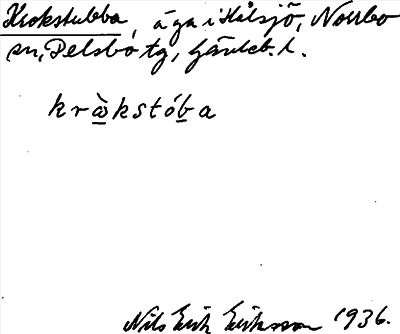 Krokstubba, äga i Hilsjö, Norrbo
sn, Delsbo tg, Gävleb. l.
kròkstóba
Nils Erik Eriksson 1936.